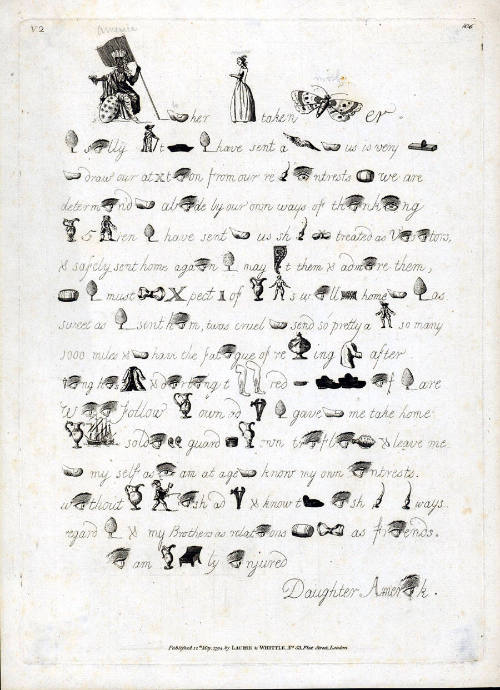 V2
106
America
to
miss
moth
her taken er.
s lly t have sent a us is very
draw our at x t on from our re ntrests we are
determ nd al de by our own ways of th nk ng
5 ren have sent us sh treated as V s tors,
& safely sent home aga n may t them & adm re them,
must X pect 1 of s w ll home as
sweet as sint h m, twas cruel send so pretty a so many
1000 miles & have the fat que of re ing after
ng ho & d rt ng t red f are
W follow own ad gave me take home
sold guard own tr fl & leave me
my self as am at age know my own ntrests.
w thout sh ad & know t sh ways
regard & my Brothers as relat ons as fr ends.
am ly njured
Daughter Amer k.
Published 12th May, 1794 by LAURIE & WHITTLE, No. 53, Fleet Street, London